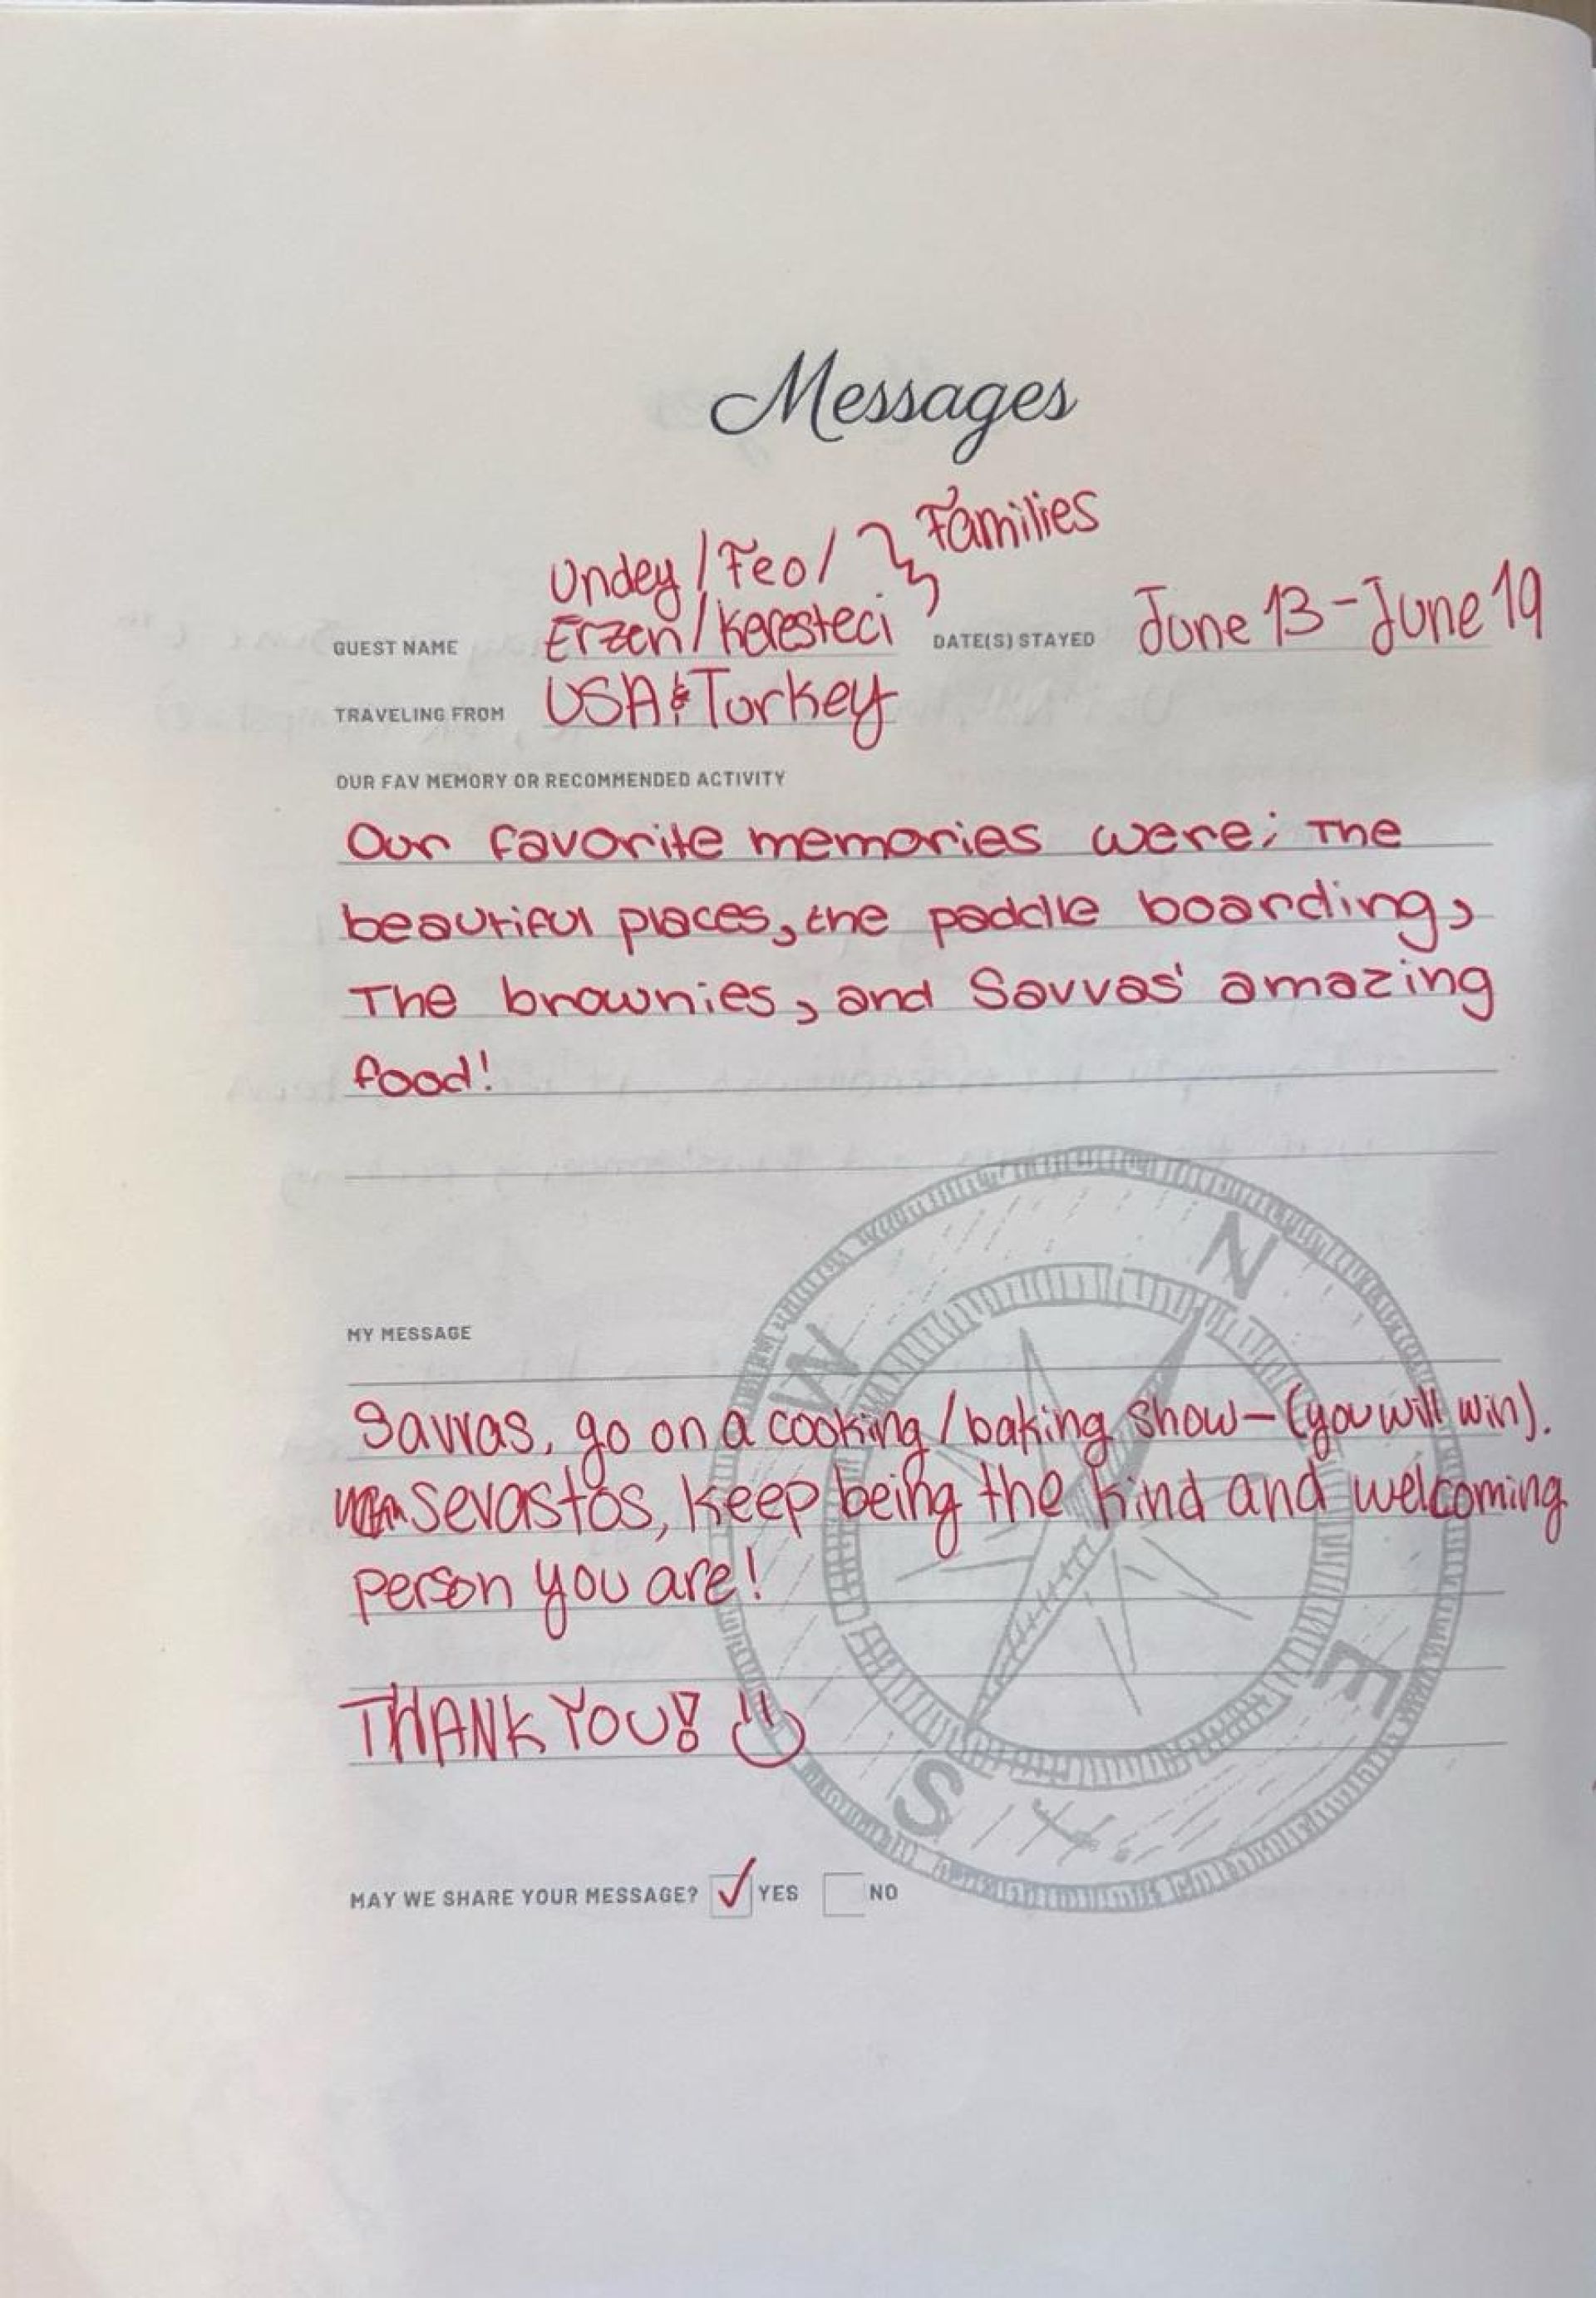 Messages
Undey / Feo / } Families
GUEST NAME Erzen / Keresteci DATE(S) STAYED June 13 - June 19
TRAVELING FROM USA & Turkey
OUR FAV MEMORY OR RECOMMENDED ACTIVITY
Our favorite memories were; The
beautiful places, the paddle boarding,
The brownies, and Savvas' amazing
food!
N
W
MY MESSAGE
Savvas, go on a cooking / baking show - (you will win).
Sevastos, keep being the kind and welcoming
person you are!
E
THANK YOU! :)
S
MAY WE SHARE YOUR MESSAGE? ✓ YES NO